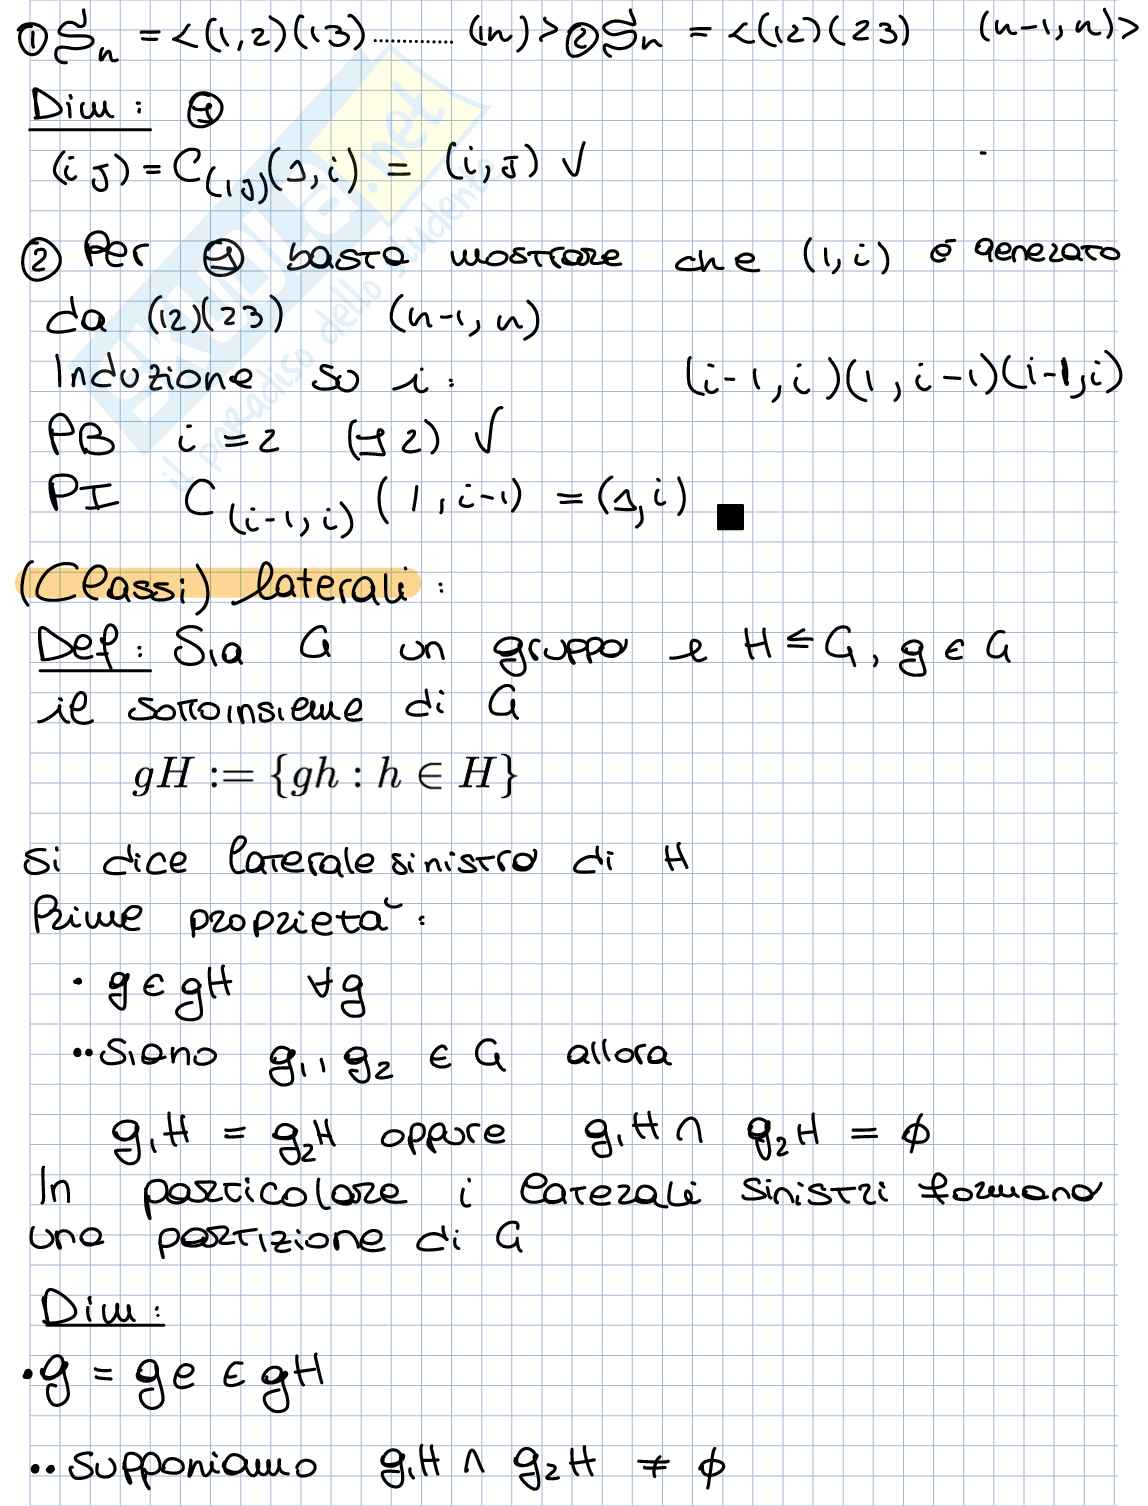 ① Sn = <(1,2)(13)............. (1n)> ② Sn = <(12)(23) (n-1, n)>
Dim: ①
(i J) = C(1J)(1,i) = (i,J) √
② Per ① basta mostrare che (1,i) è generato
da (12)(23) (n-1, n)
Induzione so i: (i-1,i)(1,i-1)(i-1,i)
PB i=2 (1 2) √
PI C(i-1,i) (1,i-1) = (1,i) ■
(Classi) laterali:
Def: Sia G un gruppo e H ≤ G, g ∈ G
il sottoinsieme di G
gH := {gh : h ∈ H}
si dice laterale sinistro di H
Prime proprietà:
• g ∈ gH ∀g
•• Siano g1, g2 ∈ G allora
g1H = g2H oppure g1H ∩ g2H = ϕ
In particolare i laterali sinistri formano
una partizione di G
Dim:
• g = ge ∈ gH
•• supponiamo g1H ∩ g2H ≠ ϕ
SKUOLA.net
il paradiso dello studente